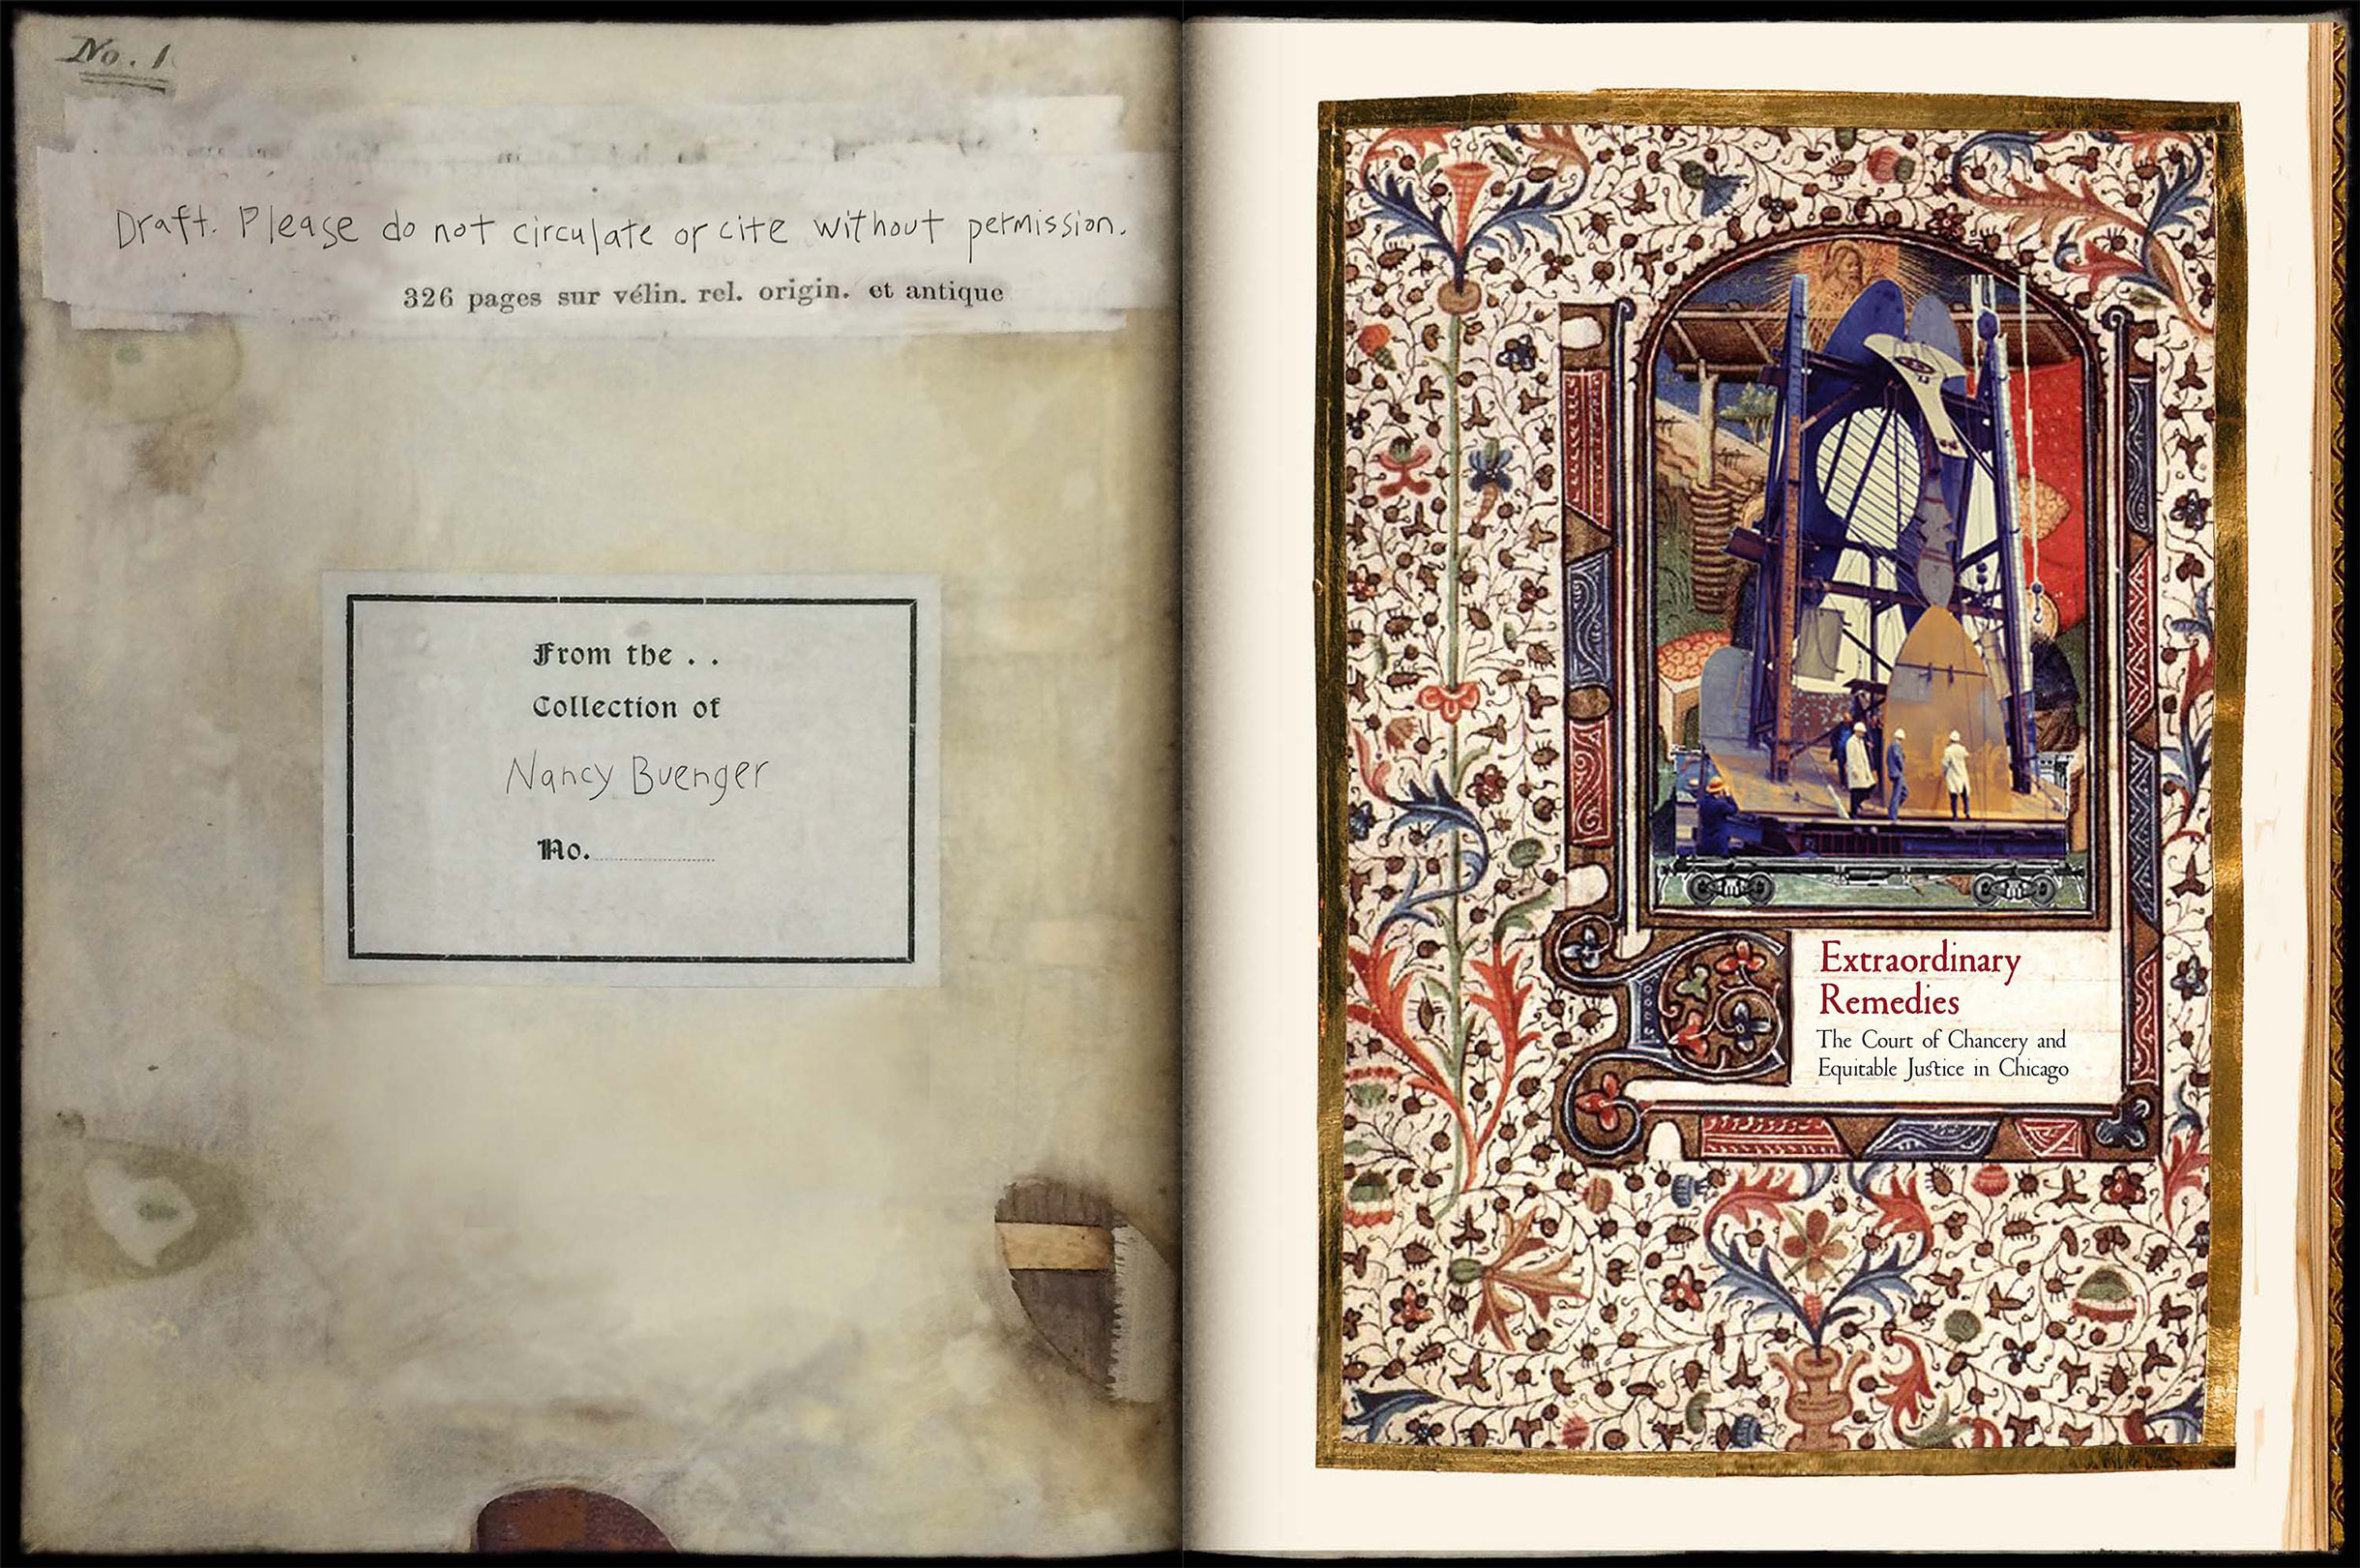 No. 1
Draft. Please do not circulate or cite without permission.
326 pages sur vélin. rel. origin. et antique
From the . .
Collection of
Nancy Buenger
No.
Extraordinary
Remedies
The Court of Chancery and
Equitable Justice in Chicago